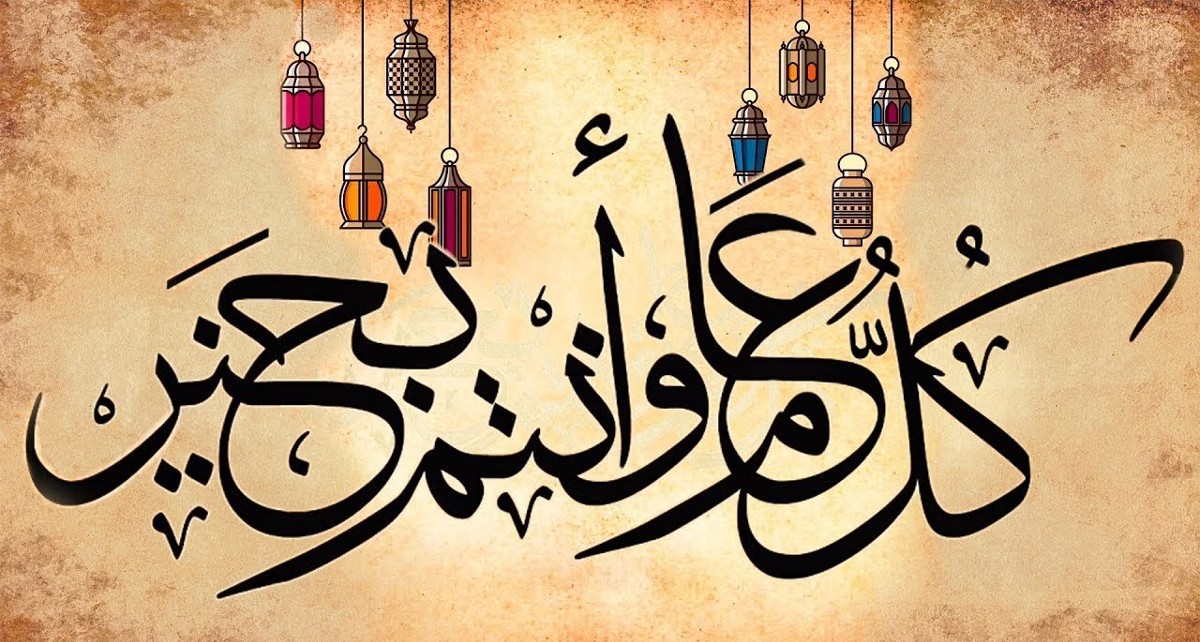 كُلُّ عَامٍ وَأَنْتُمْ بِخَيْرٍ